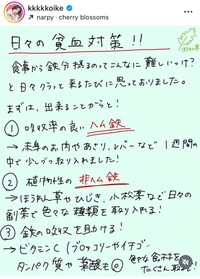 kkkkkoike
narpy・cherry blossoms
日々の貧血対策!!
食事から鉄分摂るのってこんなに難しいっけ?
と日々クラッと来るたびに思っておりました。
まずは、出来ることから!
① 吸収率の良いヘム鉄
→ 赤身のお肉やあさり、レバーなど 1週間の
中で少しづつ取り入れました!
② 植物性の非ヘム鉄
→ほうれん草やひじき、小松菜など日々の
副菜で色々な種類を取り入れる!
③ 鉄の吸収を助ける!
→ ビタミンC(ブロッコリーやイチゴ
タンパク質や葉酸も◎
色々な食材を